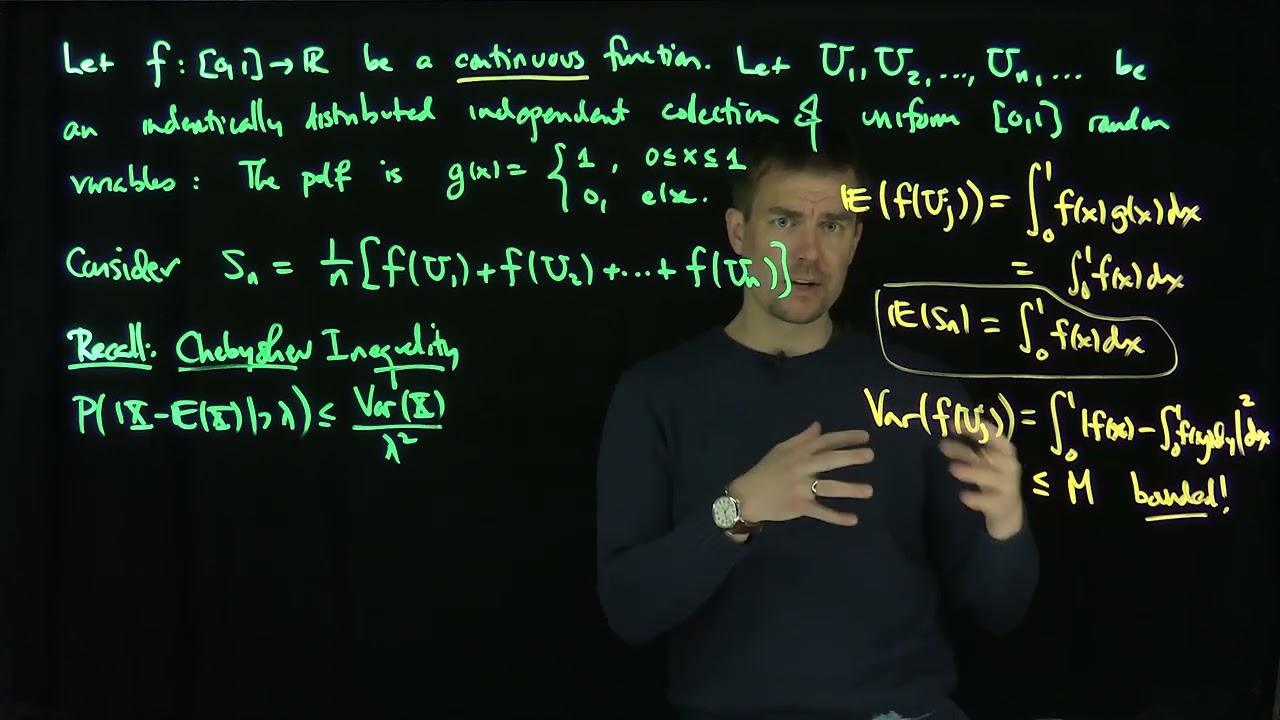 Let f : [0,1] → ℝ be a continuous function. Let U₁, U₂, ..., Uₙ, ... be
an indentically distributed independent colection of uniform [0,1] random
variables: The pdf is g(x) = { 1, 0≤x≤1
0, else.
Consider Sₙ = 1/n [f(U₁) + f(U₂) + ... + f(Uₙ)]
Recall: Chebyshev Inequality
P(|X − E(X)| > λ) ≤ Var(X)/λ²
E(f(Uⱼ)) = ∫₀¹ f(x) g(x) dx
= ∫₀¹ f(x) dx
E(Sₙ) = ∫₀¹ f(x) dx
Var(f(Uⱼ)) = ∫₀¹ |f(x) − ∫₀¹ f(y) dy|² dx
≤ M bounded!